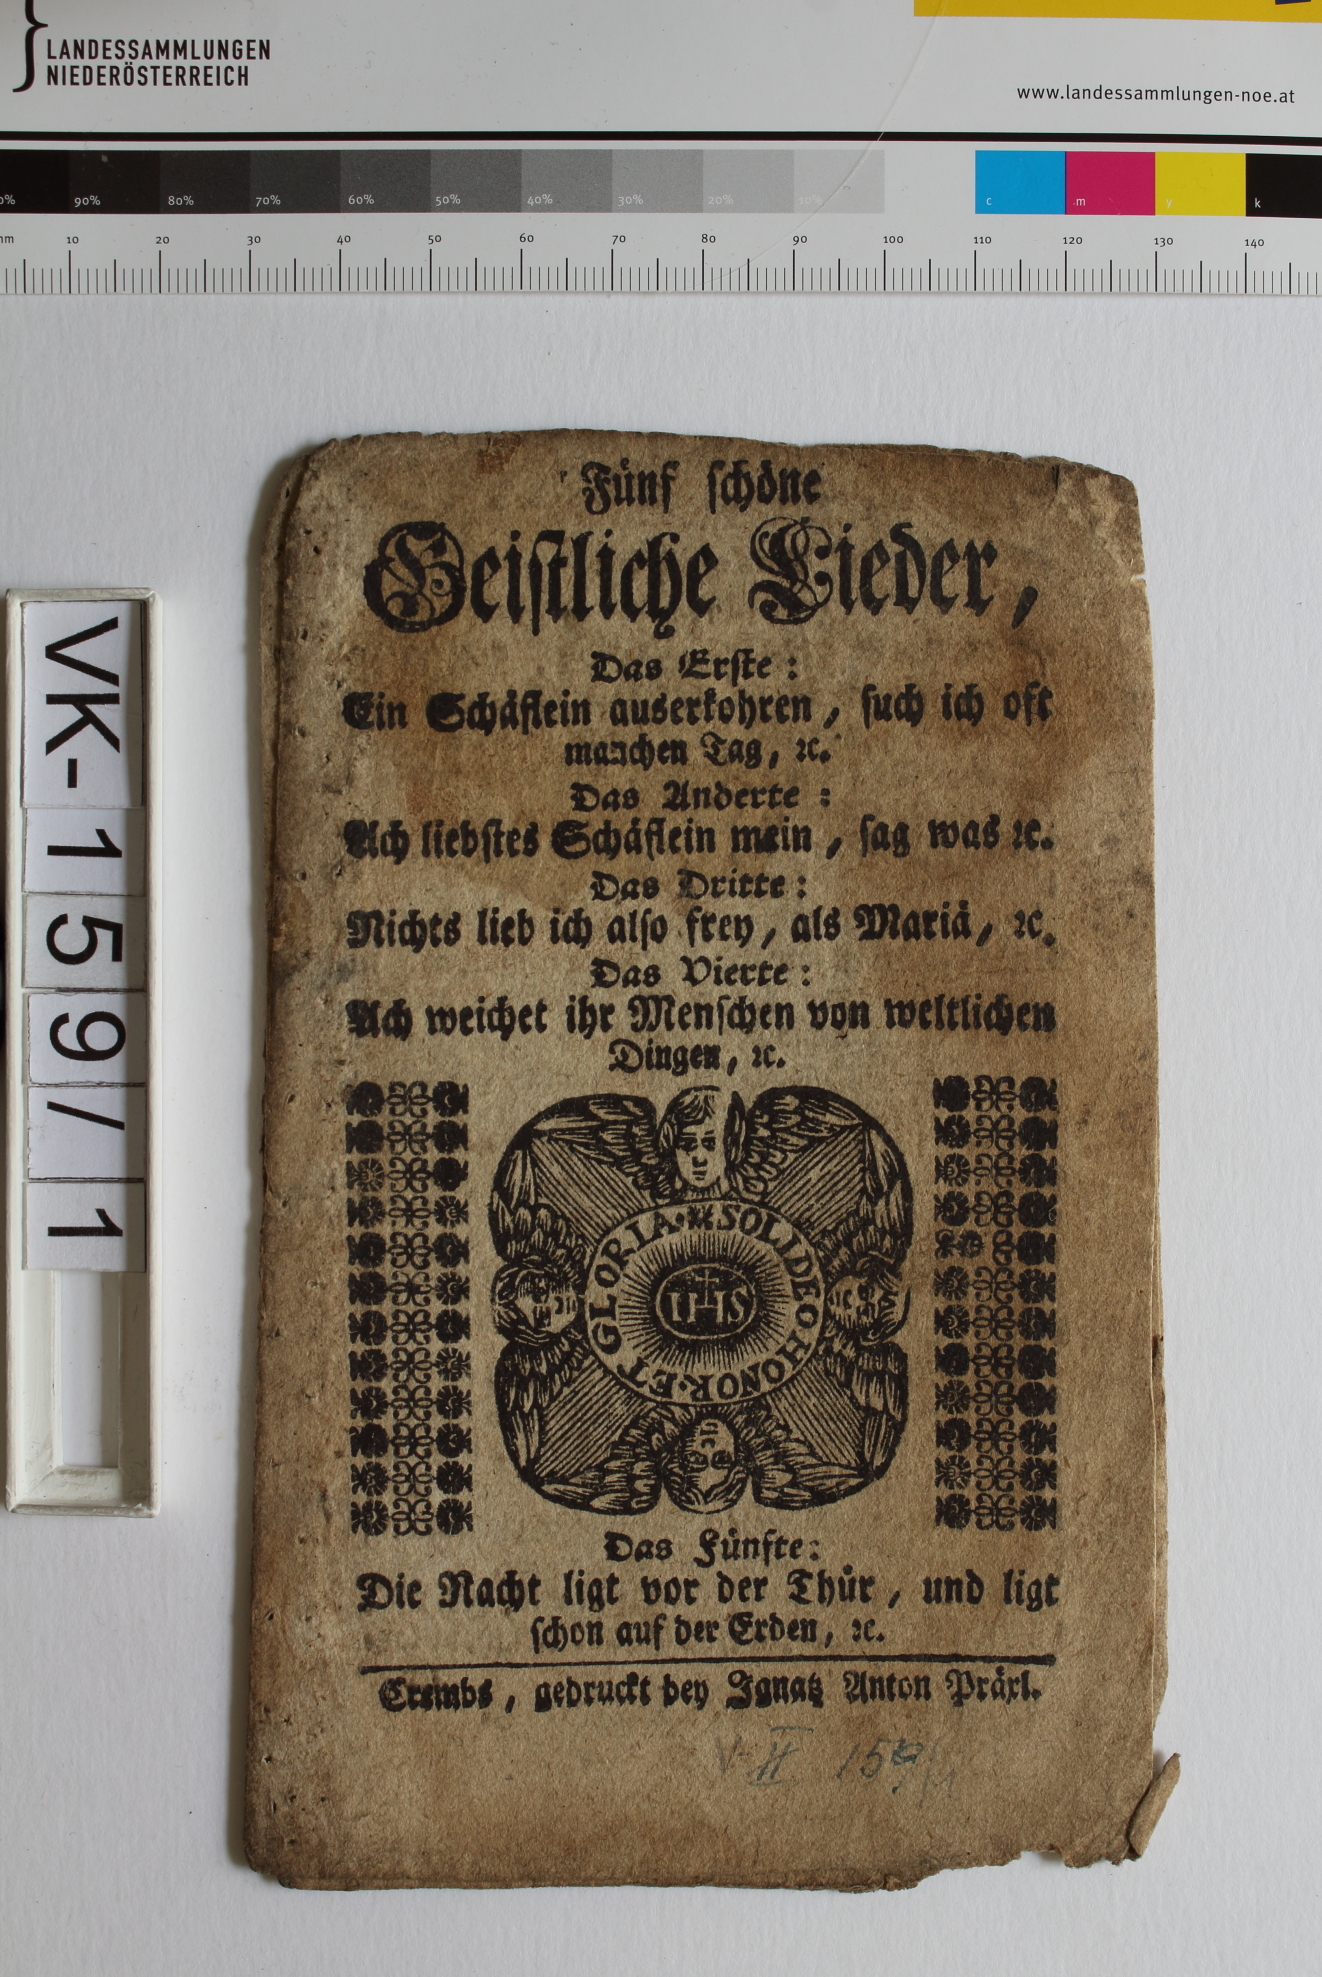 LANDESSAMMLUNGEN
NIEDERÖSTERREICH
www.landessammlungen-noe.at
90% 80% 70% 60% 50% 40% 30% 20% 10% c m y k
10 20 30 40 50 60 70 80 90 100 110 120 130 140
VK-159/1
Fünf schöne
Geistliche Lieder,
Das Erste:
Ein Schäflein auserkohren, such ich oft
manchen Tag, ꝛc.
Das Anderte:
Ach liebstes Schäflein mein, sag was ꝛc.
Das Dritte:
Nichts lieb ich also frey, als Mariä, ꝛc.
Das Vierte:
Ach weichet ihr Menschen von weltlichen
Dingen, ꝛc.
SOLI DEO HONOR·ET GLORIA·
IHS
Das Fünfte:
Die Nacht ligt vor der Thür, und ligt
schon auf der Erden, ꝛc.
Crembs, gedruckt bey Ignatz Anton Präxl.
V II 159/1